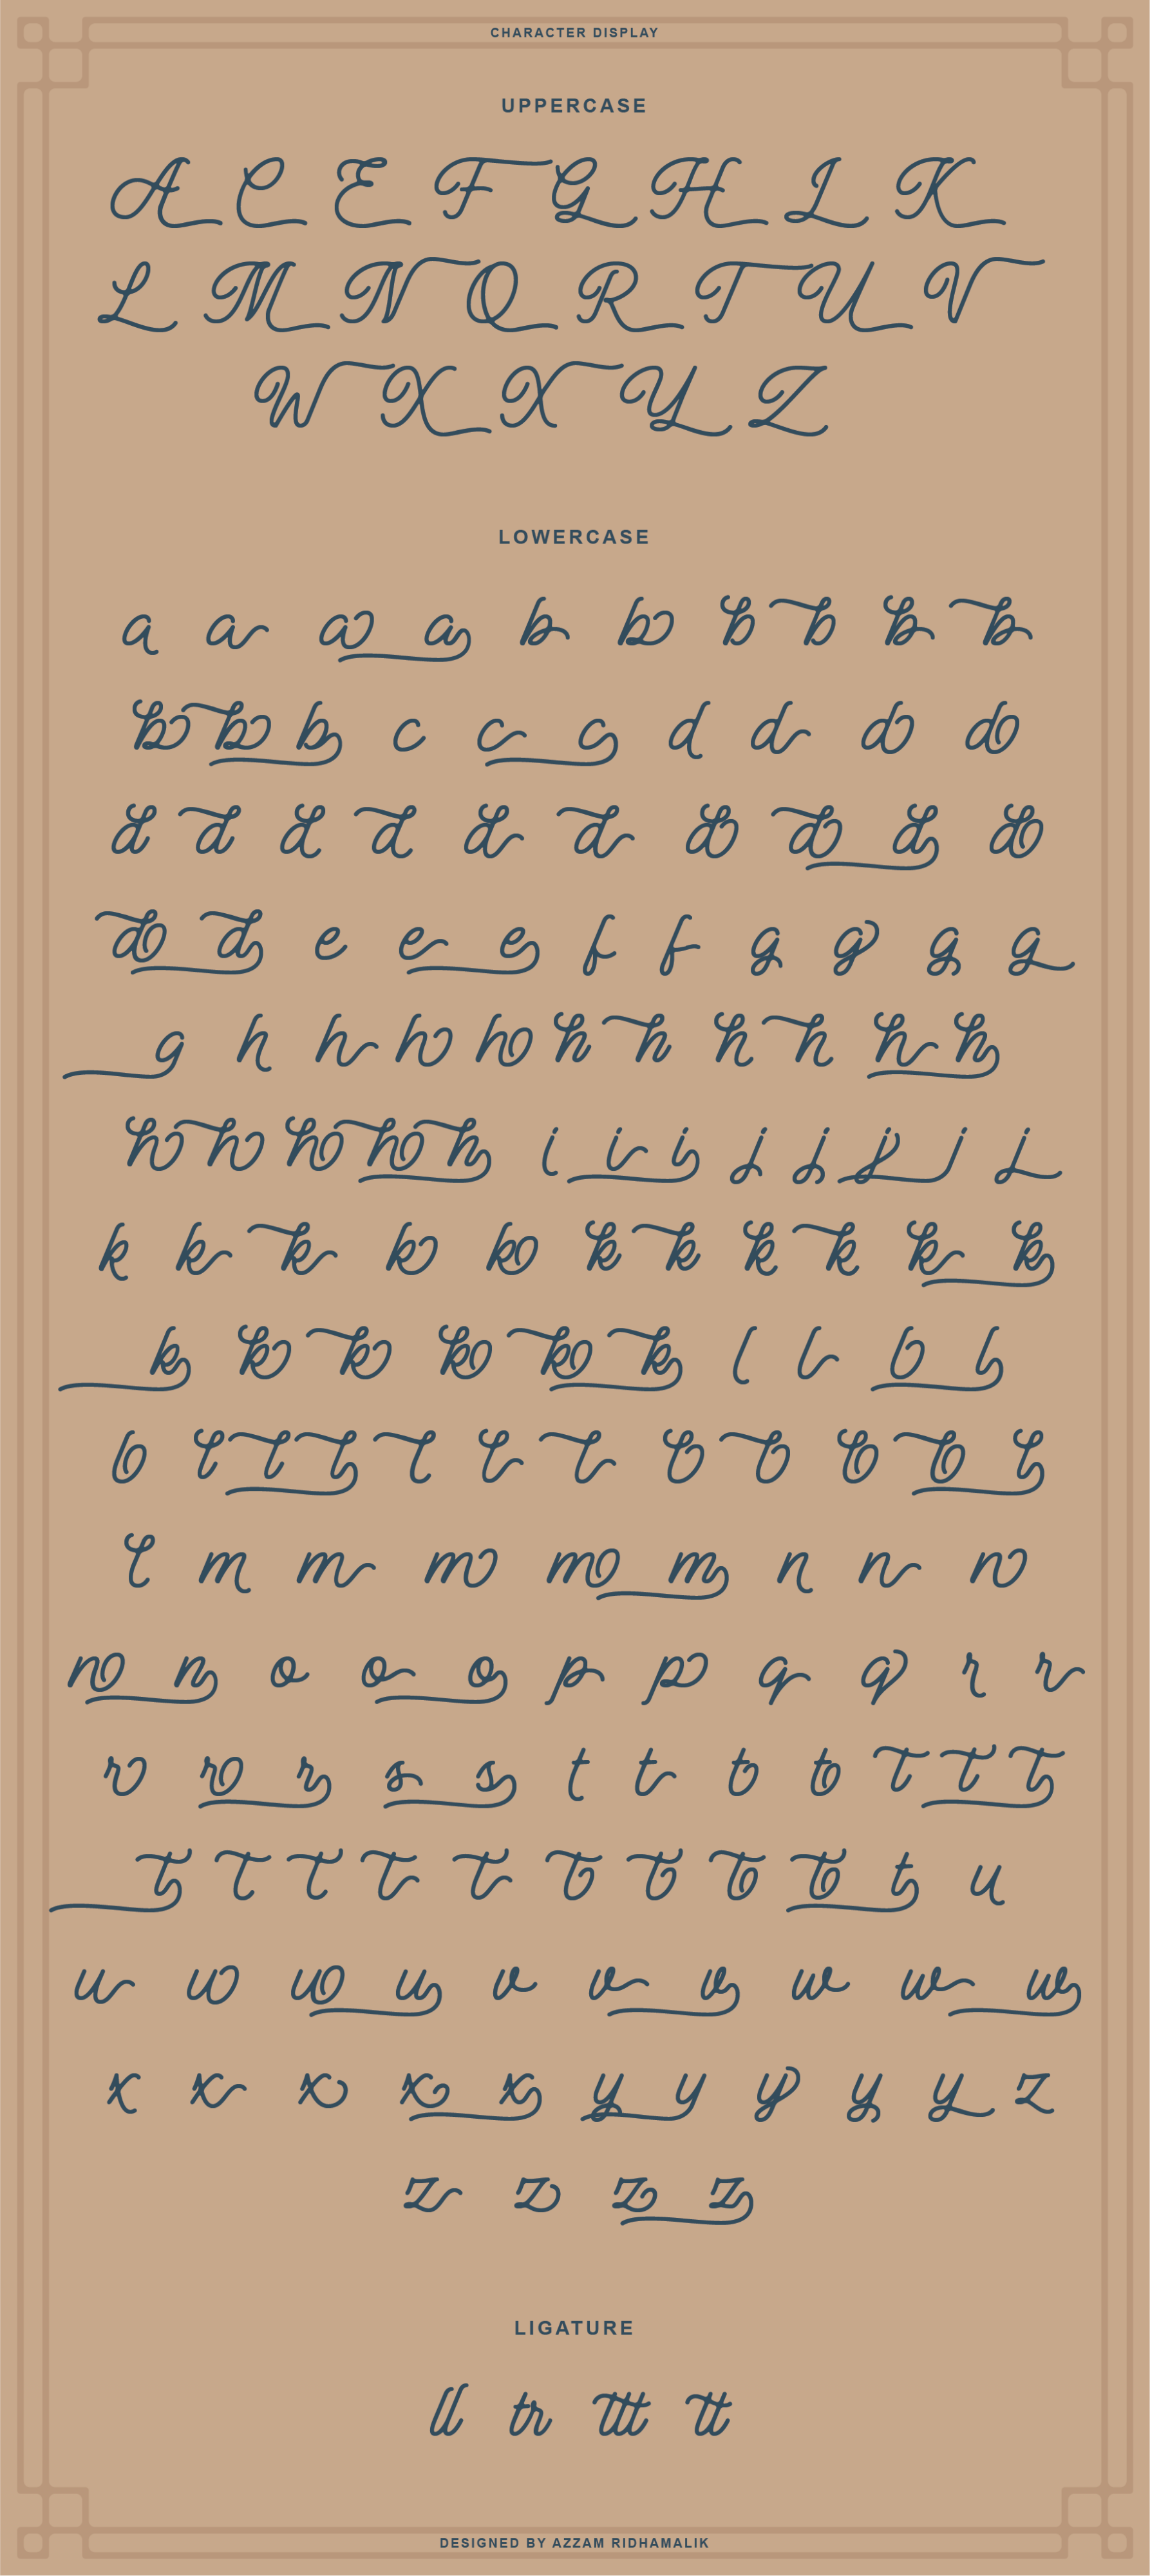 CHARACTER DISPLAY
UPPERCASE
A C E F G H I K
L M N Q R T U V
W X X Y Z
LOWERCASE
a a a a b b b b b b
b b b c c c d d d d
d d d d d d d d d d
d d e e e f f g g g g
g h h h h h h h h h h
h h h h h i i i j j j j j
k k k k k k k k k k k
k k k k k k l l l l
l l l l l l l l l l l l
l m m m m m n n n
n n o o o p p q q r r
r r r s s t t t t t t t
t t t t t t t t t t u
u u u u v v v w w w
x x x x x y y y y y z
z z z z
LIGATURE
ll tr ttt tt
DESIGNED BY AZZAM RIDHAMALIK